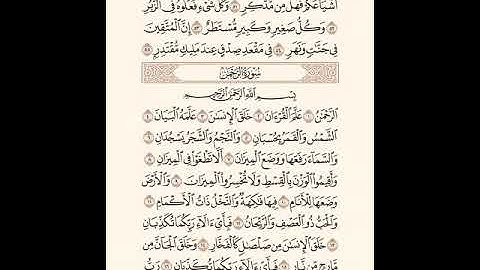 أَشْيَاعَكُمْ فَهَلْ مِن مُّدَّكِرٍ ۝٥١ وَكُلُّ شَىْءٍ فَعَلُوهُ فِى ٱلزُّبُرِ
۝٥٢ وَكُلُّ صَغِيرٍ وَكَبِيرٍ مُّسْتَطَرٌ ۝٥٣ إِنَّ ٱلْمُتَّقِينَ
فِى جَنَّٰتٍ وَنَهَرٍ ۝٥٤ فِى مَقْعَدِ صِدْقٍ عِندَ مَلِيكٍ مُّقْتَدِرٍۭ ۝٥٥
سُورَةُ الرَّحْمَٰن
بِسْمِ ٱللَّهِ ٱلرَّحْمَٰنِ ٱلرَّحِيمِ
ٱلرَّحْمَٰنُ ۝١ عَلَّمَ ٱلْقُرْءَانَ ۝٢ خَلَقَ ٱلْإِنسَٰنَ ۝٣ عَلَّمَهُ ٱلْبَيَانَ ۝٤
ٱلشَّمْسُ وَٱلْقَمَرُ بِحُسْبَانٍ ۝٥ وَٱلنَّجْمُ وَٱلشَّجَرُ يَسْجُدَانِ ۝٦
وَٱلسَّمَآءَ رَفَعَهَا وَوَضَعَ ٱلْمِيزَانَ ۝٧ أَلَّا تَطْغَوْا۟ فِى ٱلْمِيزَانِ ۝٨
وَأَقِيمُوا۟ ٱلْوَزْنَ بِٱلْقِسْطِ وَلَا تُخْسِرُوا۟ ٱلْمِيزَانَ ۝٩ وَٱلْأَرْضَ
وَضَعَهَا لِلْأَنَامِ ۝١٠ فِيهَا فَٰكِهَةٌ وَٱلنَّخْلُ ذَاتُ ٱلْأَكْمَامِ ۝١١
وَٱلْحَبُّ ذُو ٱلْعَصْفِ وَٱلرَّيْحَانُ ۝١٢ فَبِأَىِّ ءَالَآءِ رَبِّكُمَا تُكَذِّبَانِ
۝١٣ خَلَقَ ٱلْإِنسَٰنَ مِن صَلْصَٰلٍ كَٱلْفَخَّارِ ۝١٤ وَخَلَقَ ٱلْجَآنَّ مِن
مَّارِجٍ مِّن نَّارٍ ۝١٥ فَبِأَىِّ ءَالَآءِ رَبِّكُمَا تُكَذِّبَانِ ۝١٦ رَبُّ